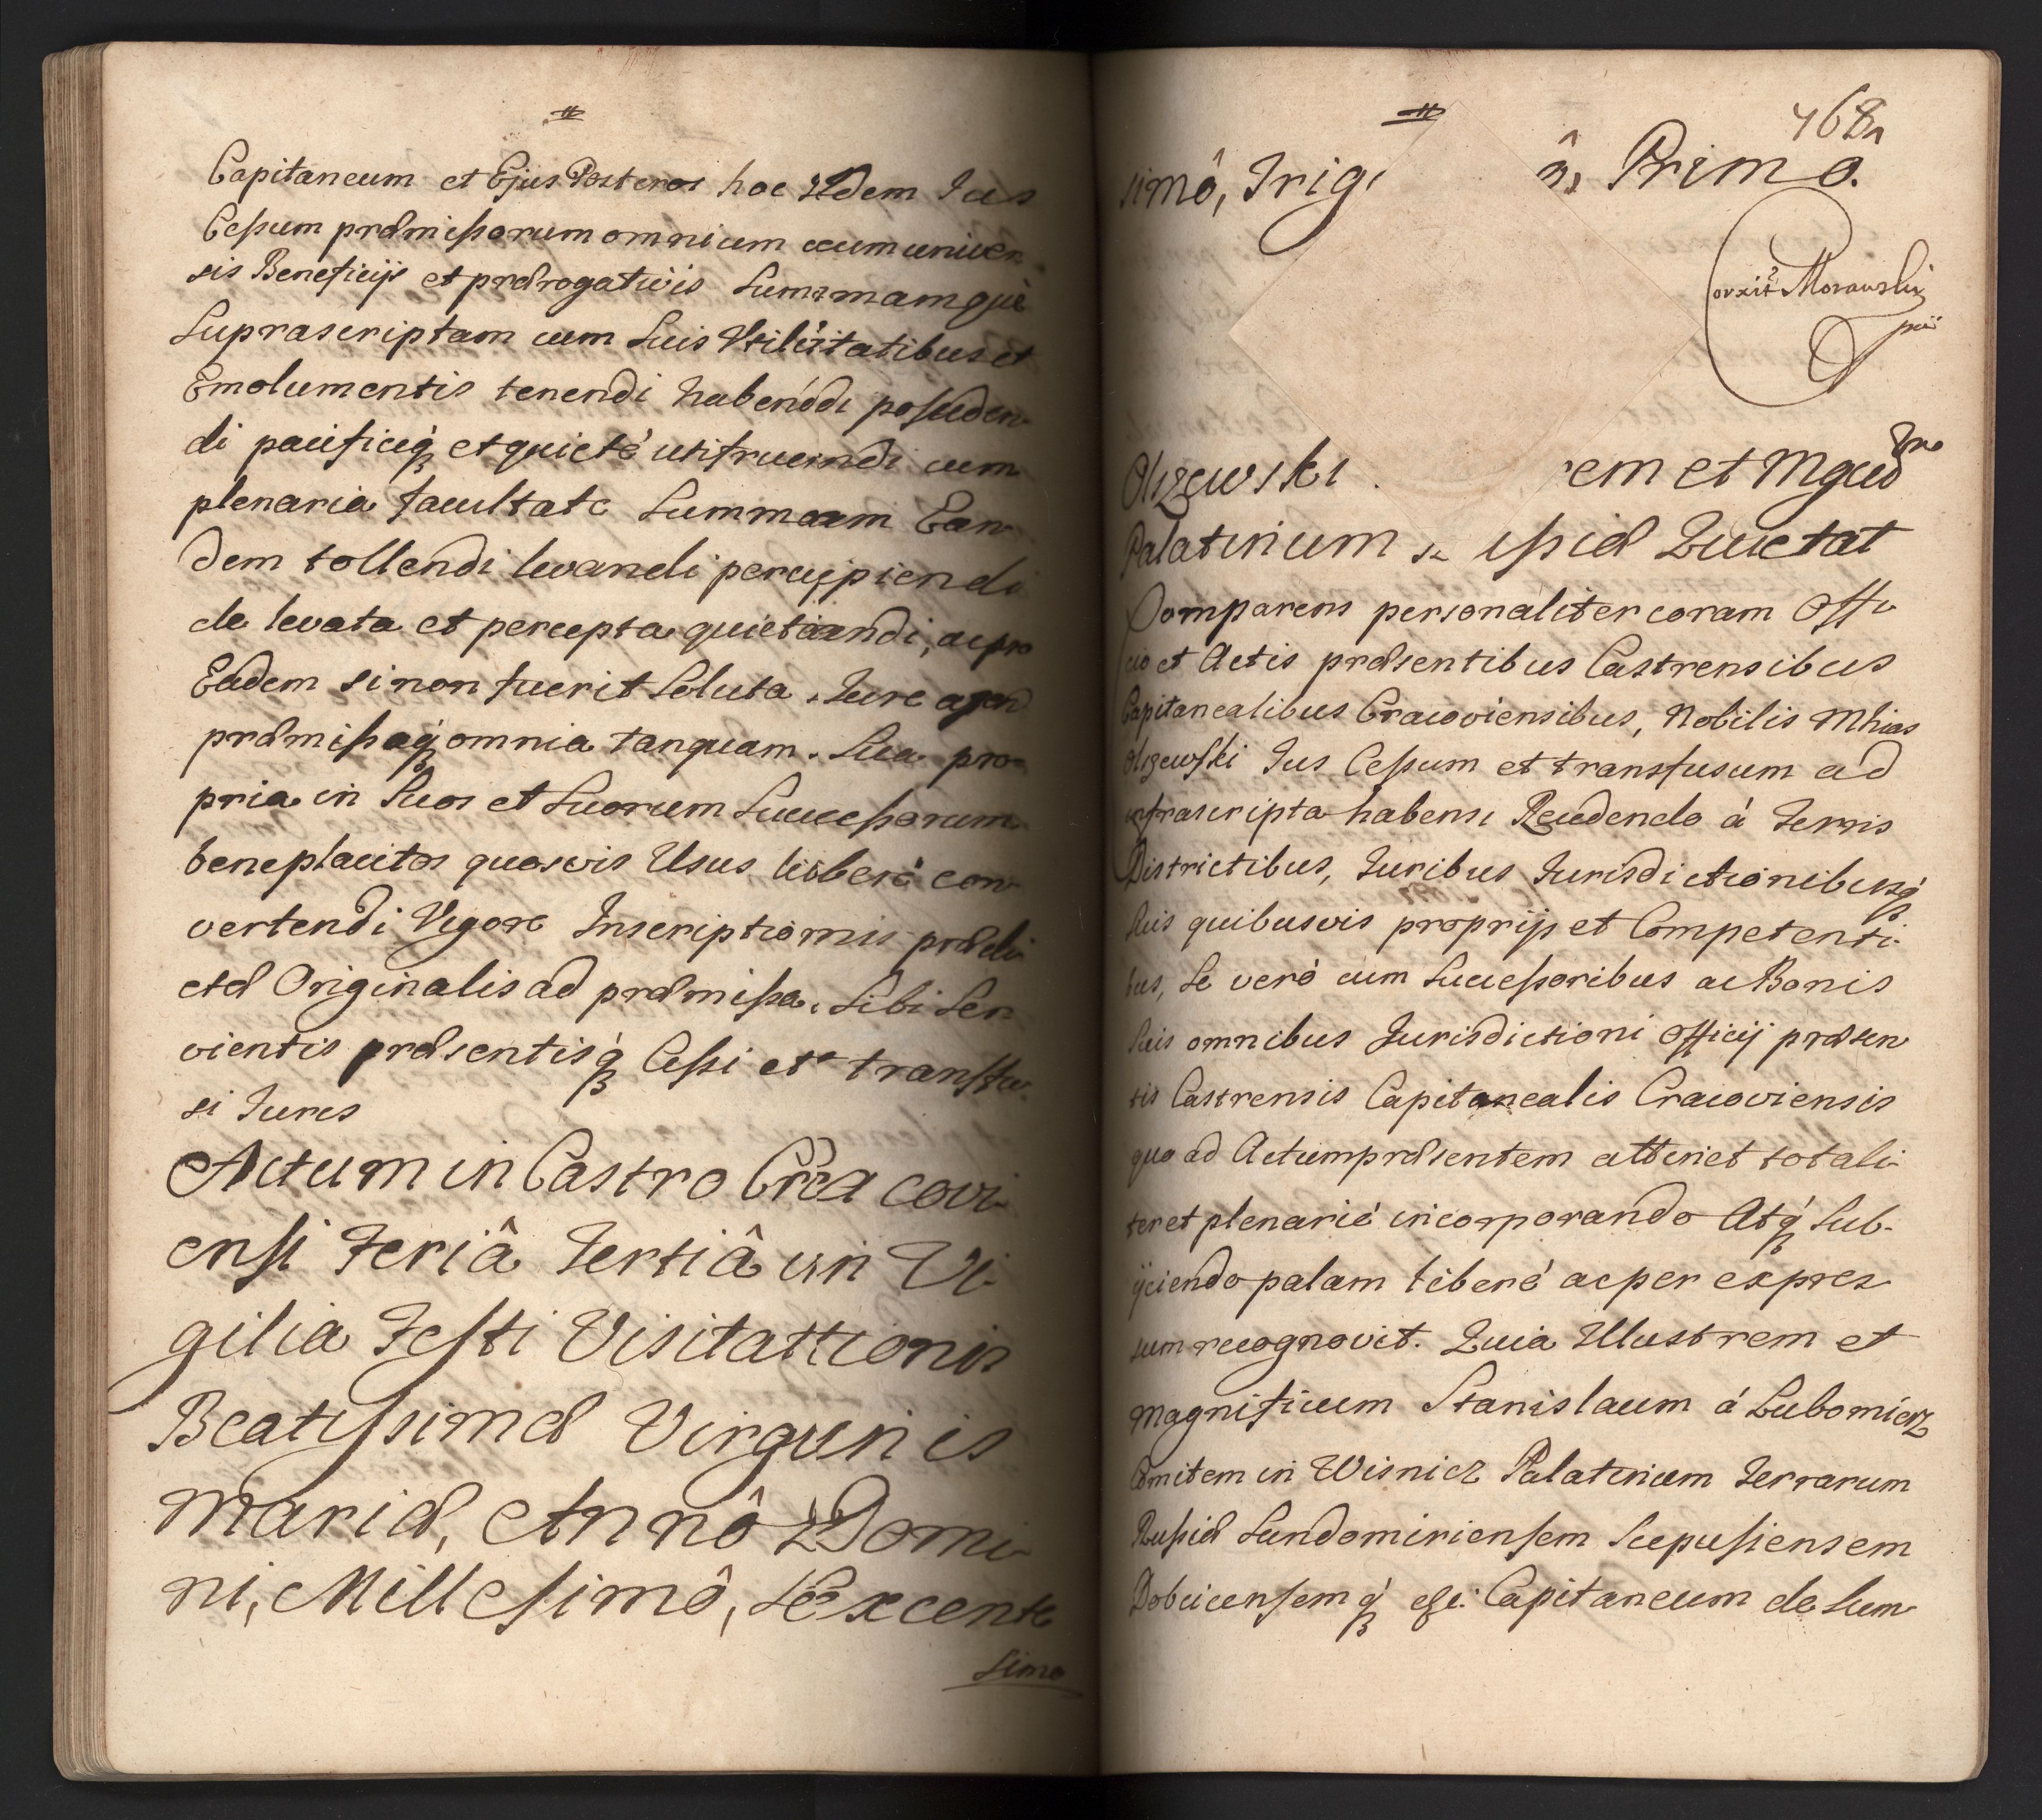 Capitaneum et Ejus Posteros hoc Idem Jus
Cessum præmissorum omnium cum univer-
sis Beneficijs et prærogativis Summamquè
Suprascriptam cum Suis Utilitatibus et
Emolumentis tenendi habendi possiden-
di pacificèq; et quietè utifruendi cum
plenaria facultate Summam Ean-
dem tollendi levandi percipiendi
de levata et percepta quietandi, ac pro
Eadem si non fuerit Soluta Jure agen
præmissaq; omnia tanquam Sua pro-
pria in Suos et Suorum Successorum
beneplacitos quosvis Usus liberè con-
vertendi Vigore Inscriptionis prædi-
ctæ Originalis ad præmissa Sibi Ser-
vientis præsentisq; Cessi et transfu-
si Juris
Actum in Castro Cracovi-
ensi Feriâ Tertiâ in Vi-
gilia Festi Visitattionis
Beatissimæ Virginis
Mariæ, Annô Domi-
ni, Millesimô, Sexcente
simo
468
simô, Trig â, Primo.
Morawski
Olszewski em et Mgcū
Palatinum ssiæ Quietat
Comparens personaliter coram Offi-
cio et Actis præsentibus Castrensibus
Capitanealibus Cracoviensibus, Nobilis Mhias
Olszewski Jus Cessum et transfusum ad
infrascripta habens Recedendo à Terris
Districtibus, Juribus Jurisdictionibusq;
Suis quibusvis proprijs et Competenti-
bus, Se verò cum Successoribus ac Bonis
Suis omnibus Jurisdictioni Officij præsen
tis Castrensis Capitanealis Cracoviensis
quo ad Actum præsentem attinet totali-
ter et plenariè incorporando Atq; Sub-
ijciendo palam liberè ac per expres-
sum recognovit. Quia Illustrem et
Magnificum Stanislaum à Lubomierz
Comitem in Wisnicz Palatinum Terrarum
Russiæ Sandomiriensem Scepusiensem
Dobcicensemq; etc: Capitaneum de Sum-